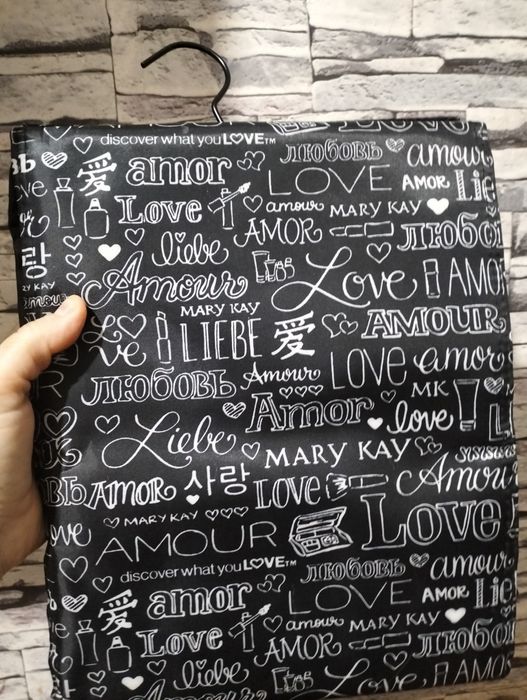 discover what you LOVE™ ЛЮБОВЬ amour
爱 amor LOVE AMOR
Love amour MARY KAY
liebe AMOR ЛЮБОВЬ
랑 Amour Love AMOR
MARY KAY
LOVE LIEBE 爱 AMOUR
ЛЮБОВЬ Amour LOVE amor
Amor MK love
Liebe MARY KAY
AMOR 사랑 LOVE Amour
MARY KAY Love
AMOUR
discover what you LOVE™ ЛЮБОВЬ amour
爱 amor LOVE AMOR
Love amour MARY KAY
liebe AMOR ЛЮБОВЬ
Love AMOR